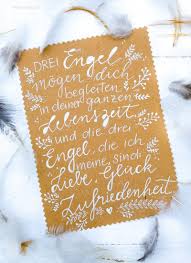 DREI Engel
mögen dich
begleiten
in deiner ganzen
Lebenszeit
und die drei
Engel, die ich
meine, sind
Liebe, Glück
Zufriedenheit